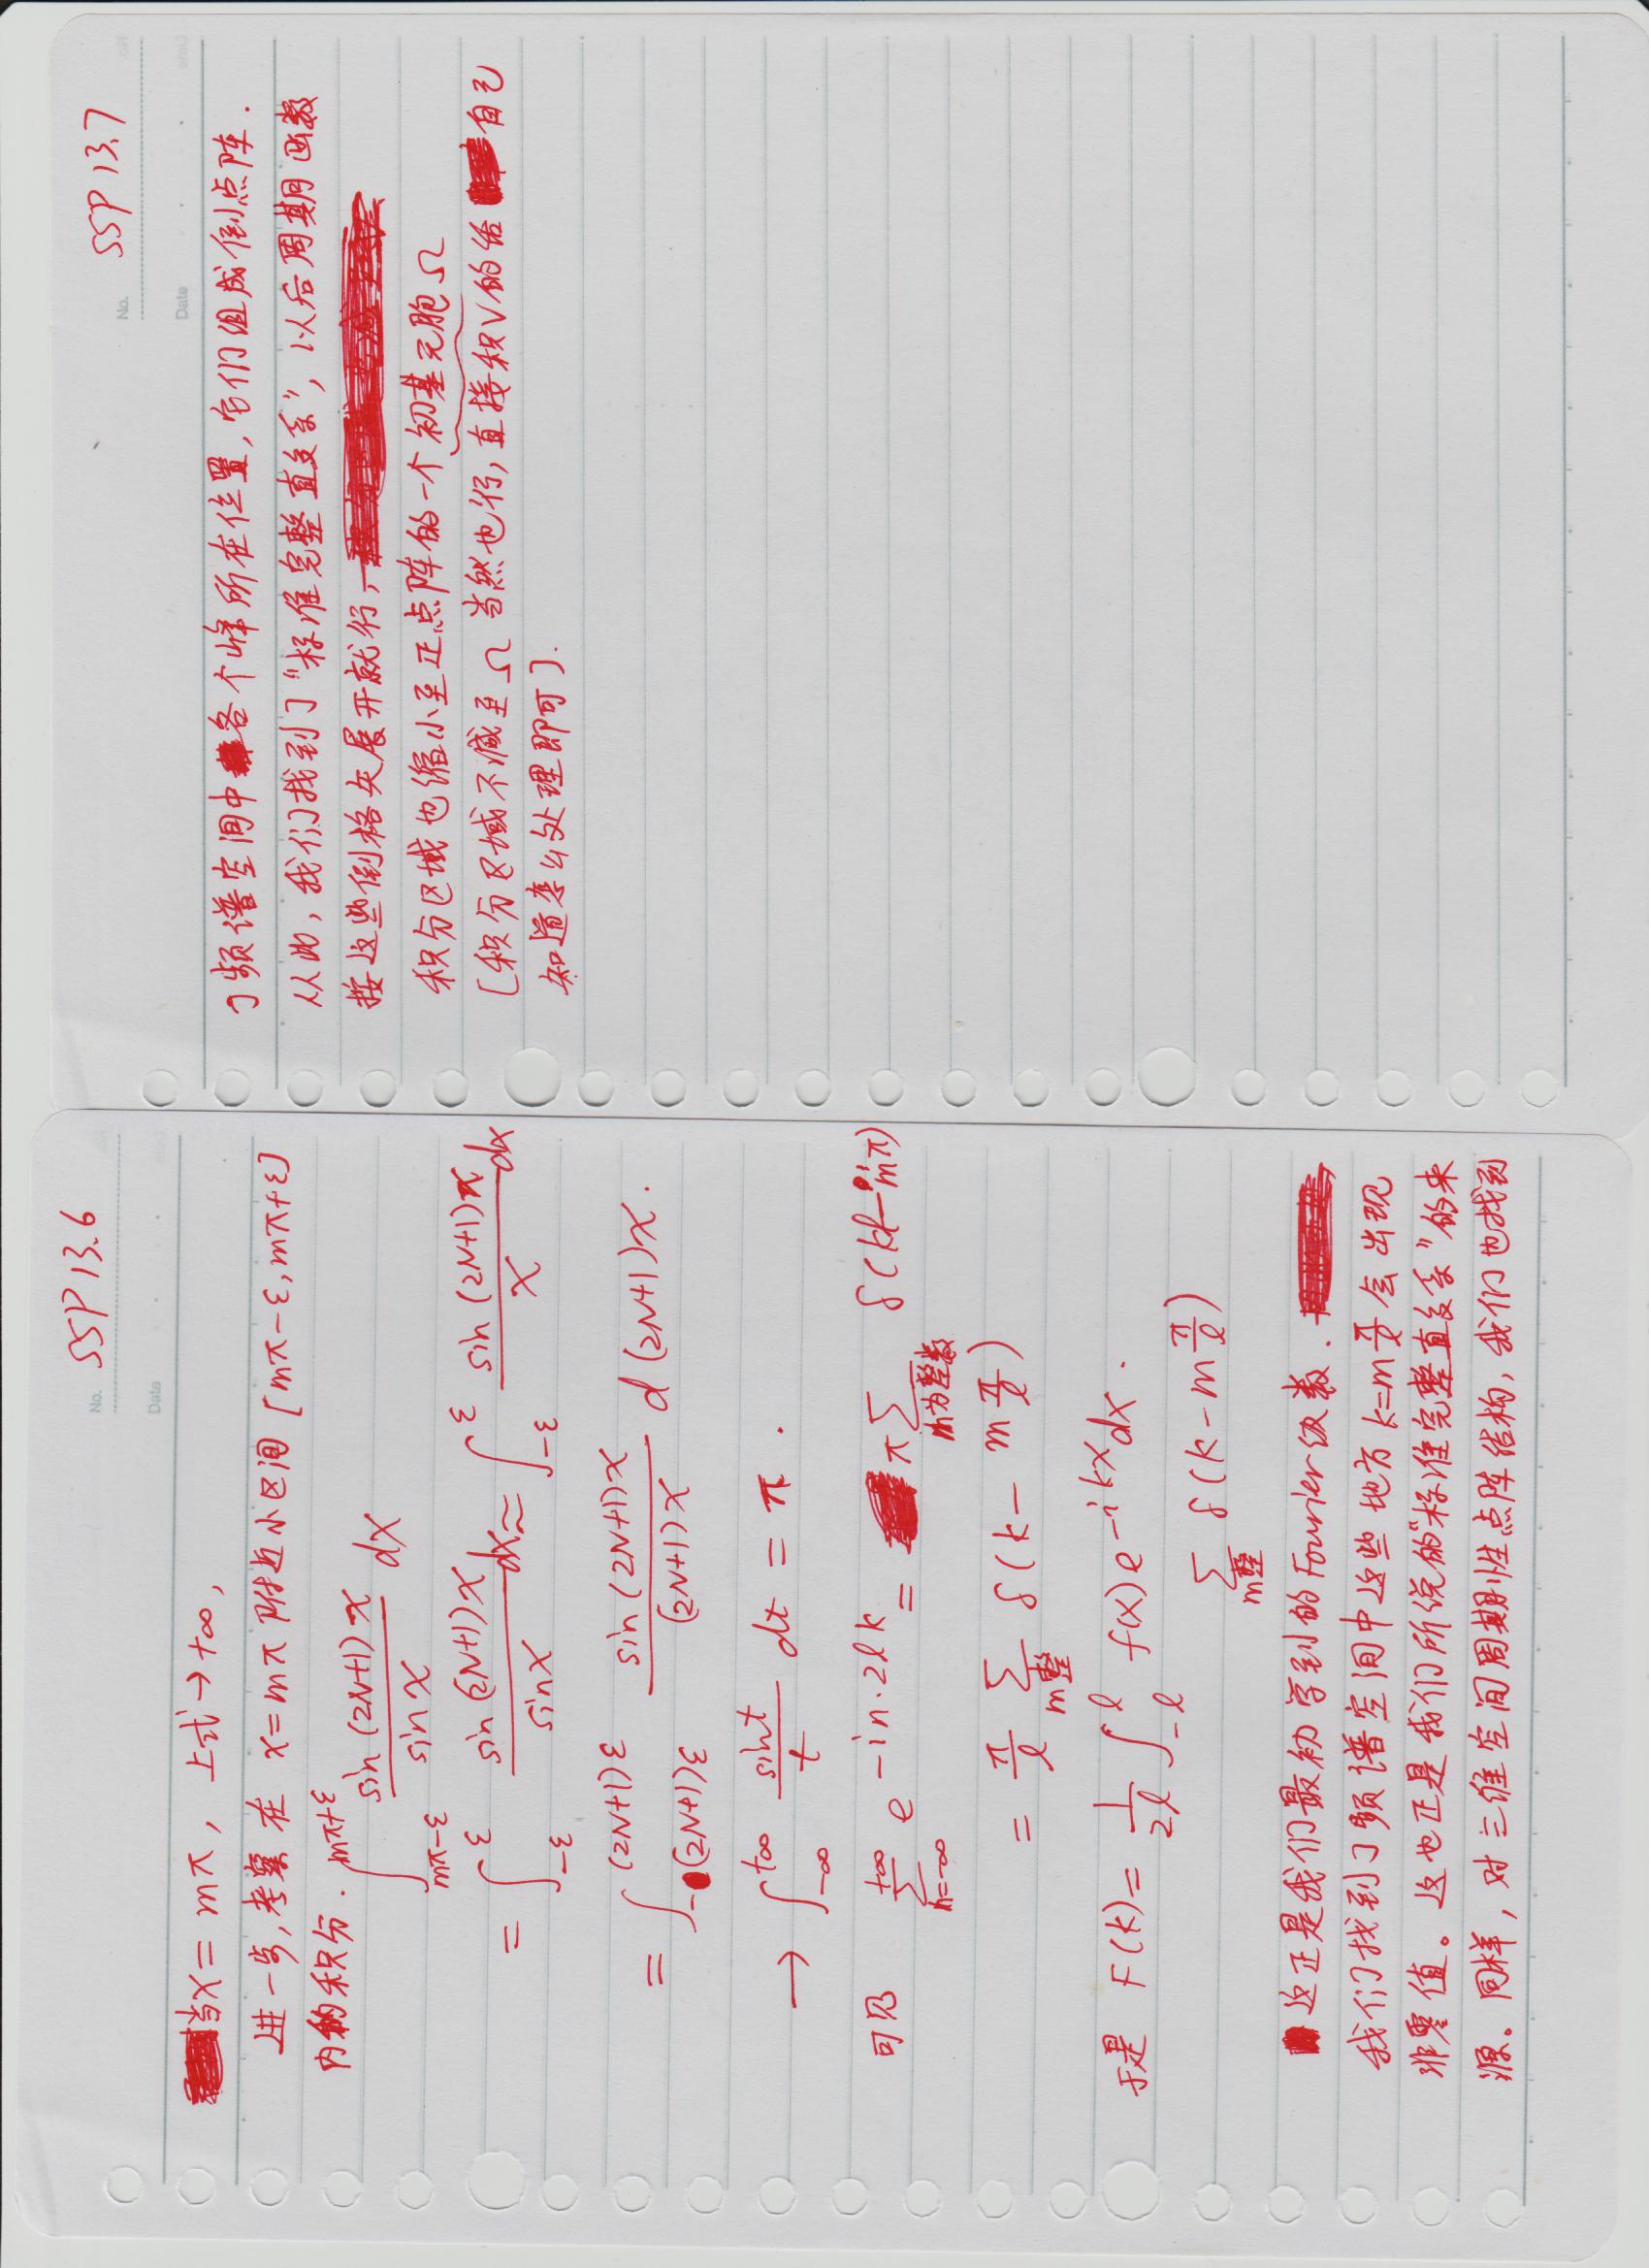 No. SSP 13.6
Date
当x = mπ, 上式→+∞,
进一步,考察在 x=mπ 附近小区间 [mπ-ε, mπ+ε]
内的积分.
∫_{mπ-ε}^{mπ+ε} \frac{sin (2N+1) x}{sin x} dx
= ∫_{-ε}^{ε} \frac{sin (2N+1) x}{sin x} dx ≈ ∫_{-ε}^{ε} \frac{sin (2N+1) x}{x} dx
= ∫_{-(2N+1)ε}^{(2N+1)ε} \frac{sin (2N+1) x}{(2N+1) x} d (2N+1) x.
→ ∫_{-∞}^{+∞} \frac{sin t}{t} dt = π .
可见 Σ_{n=-∞}^{+∞} e^{-in·2lk} = π Σ_{m为整数} δ(kl-mπ)
= \frac{π}{l} Σ_{m整} δ(k- m\frac{π}{l})
于是 F(k)= \frac{1}{2l} ∫_{-l}^{l} f(x) e^{-ikx} dx .
Σ_{m整} δ(k-m\frac{π}{l})
这正是我们最初学到的Fourier级数.
我们找到了频谱空间中这些地方 k=m\frac{π}{l} 会出现
非零值。这也正是我们所说的“标准完整直交系”的来
源。同样,对三维空间周期性点阵结构,我们也找到
No. SSP 13.7
Date
了频谱空间中各个峰所在位置,它们组成倒点阵.
从此,我们找到了“标准完整直交系”,以后周期函数
按这些倒格矢展开就行,
积分区域也缩小至正点阵的一个初基元胞Ω
[积分区域不减至Ω当然也行,直接积V的话自己
知道怎么处理即可].